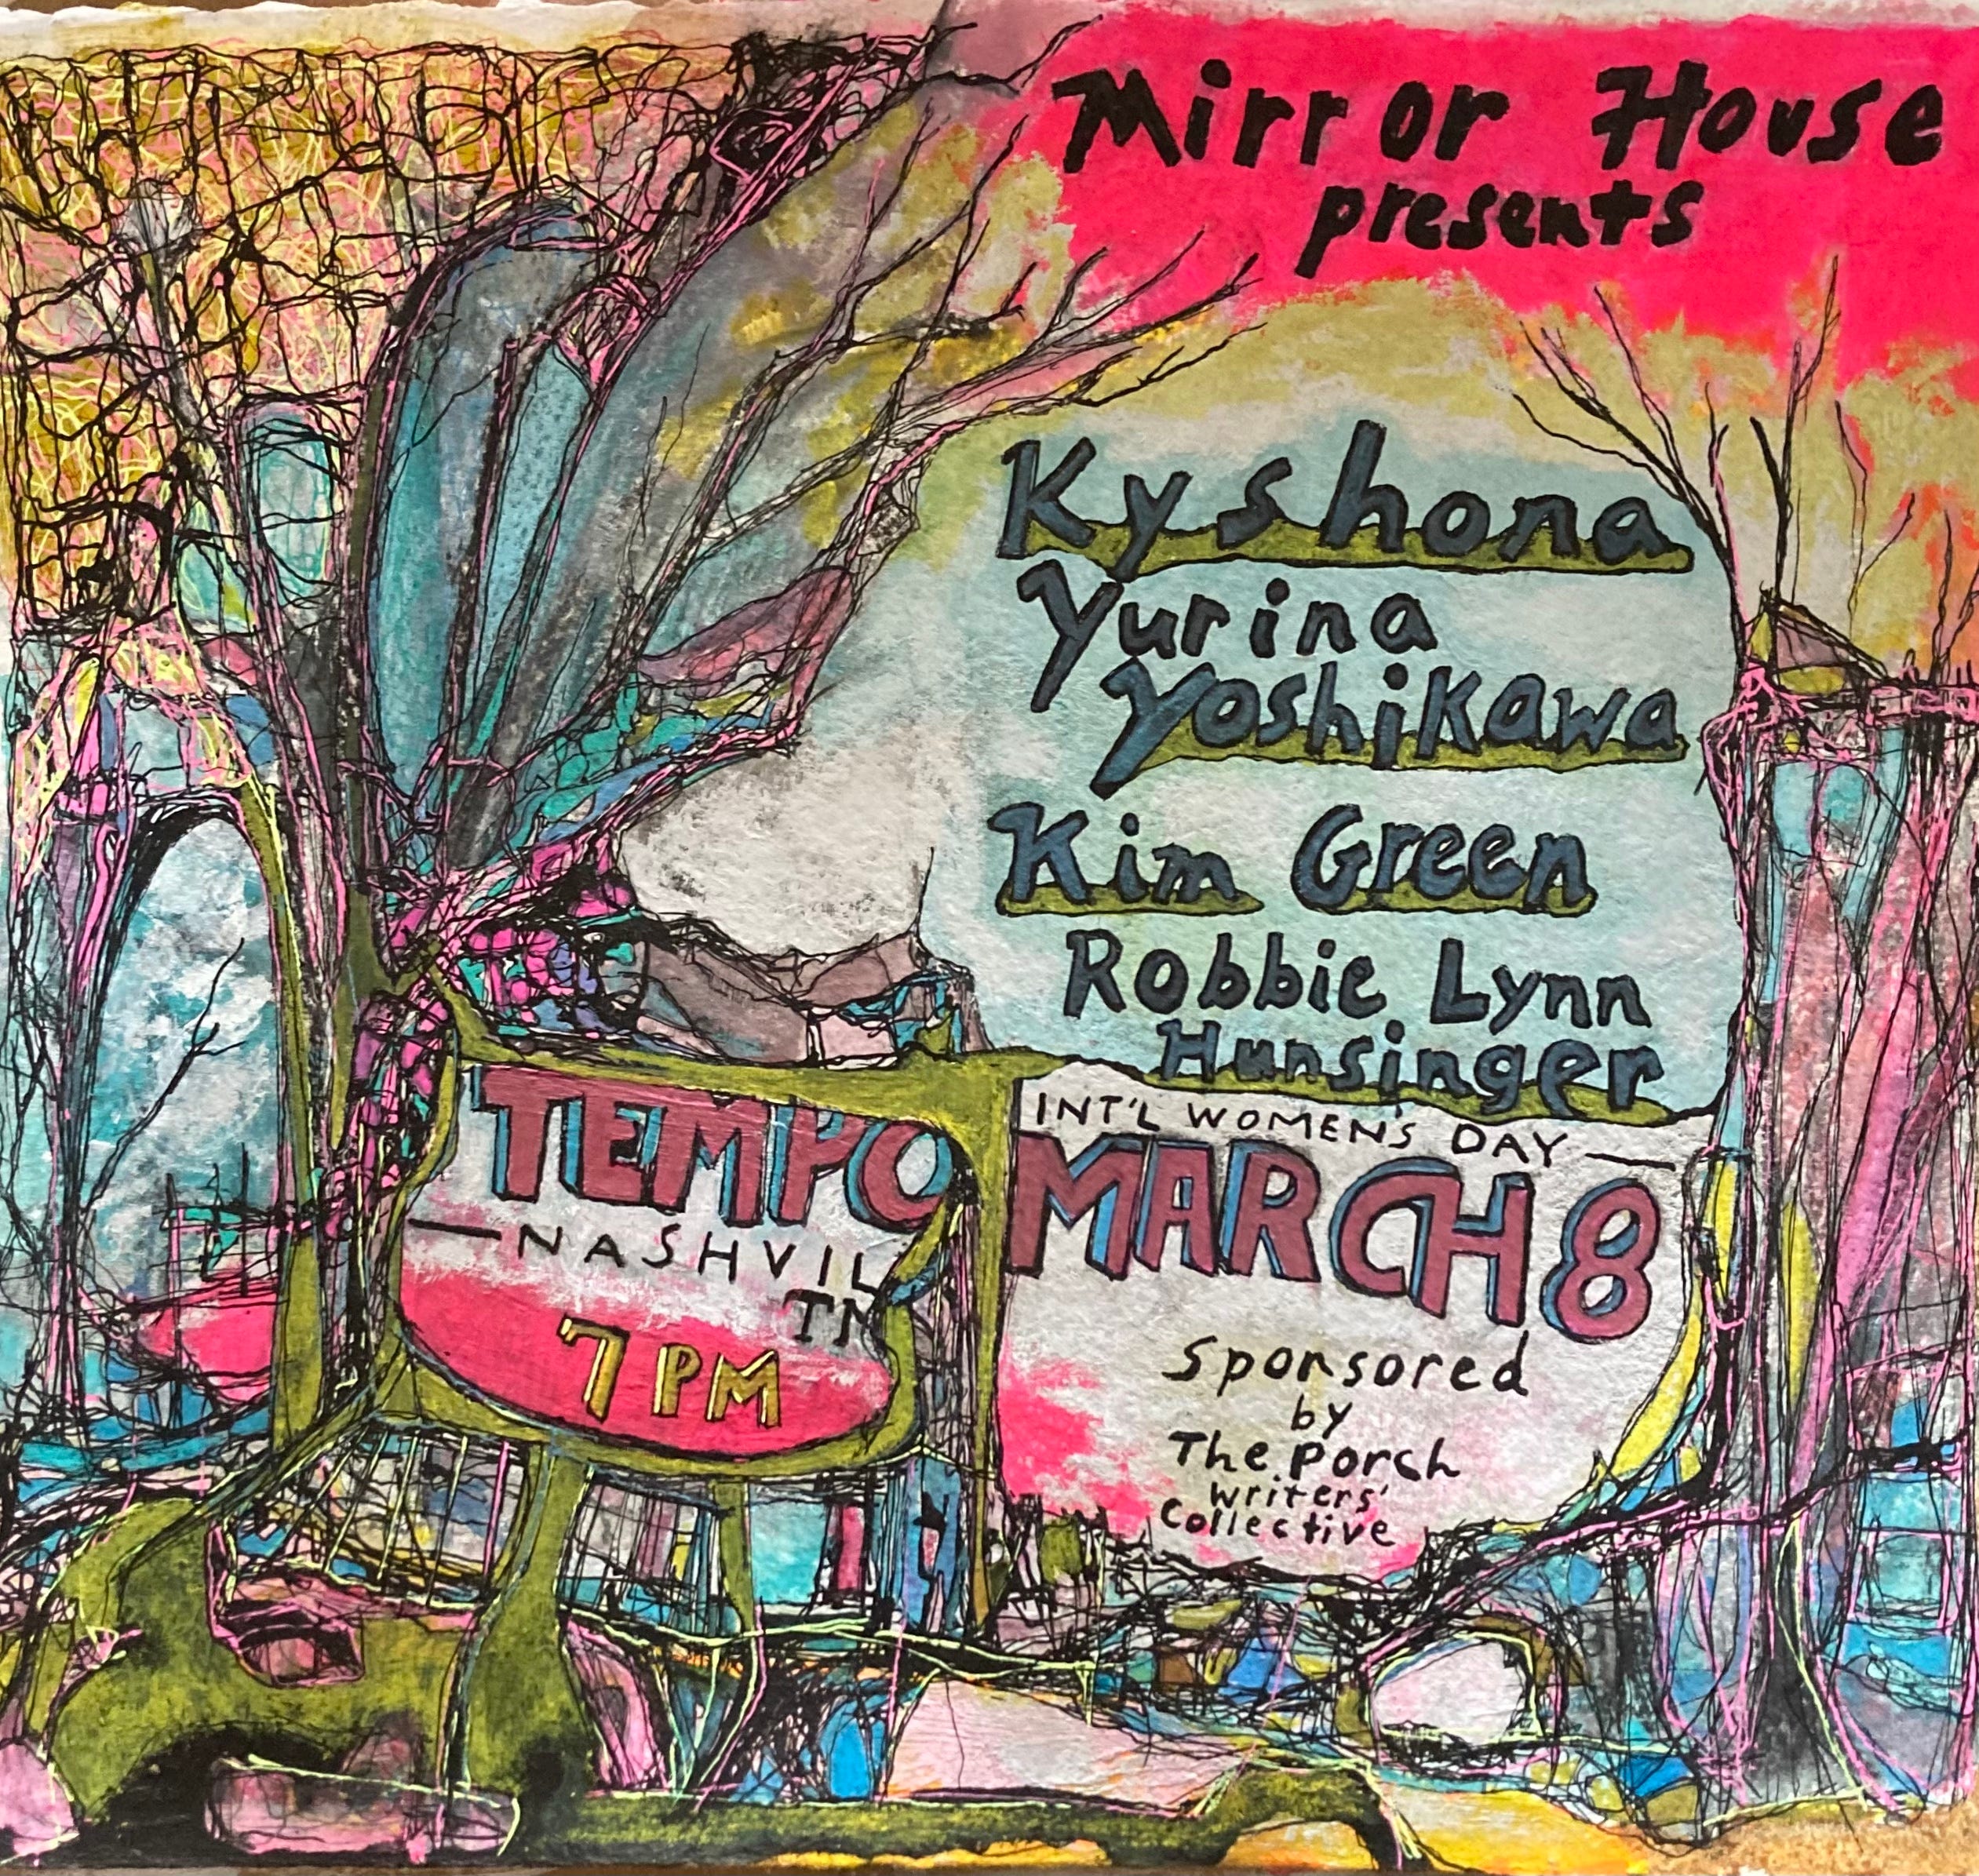 Mirror House
presents
Kyshona
Yurina
Yoshikawa
Kim Green
Robbie Lynn
Hunsinger
TEMPO
NASHVIL
TN
7 PM
INT'L WOMEN'S DAY
MARCH 8
Sponsored
by
The Porch
Writers'
Collective